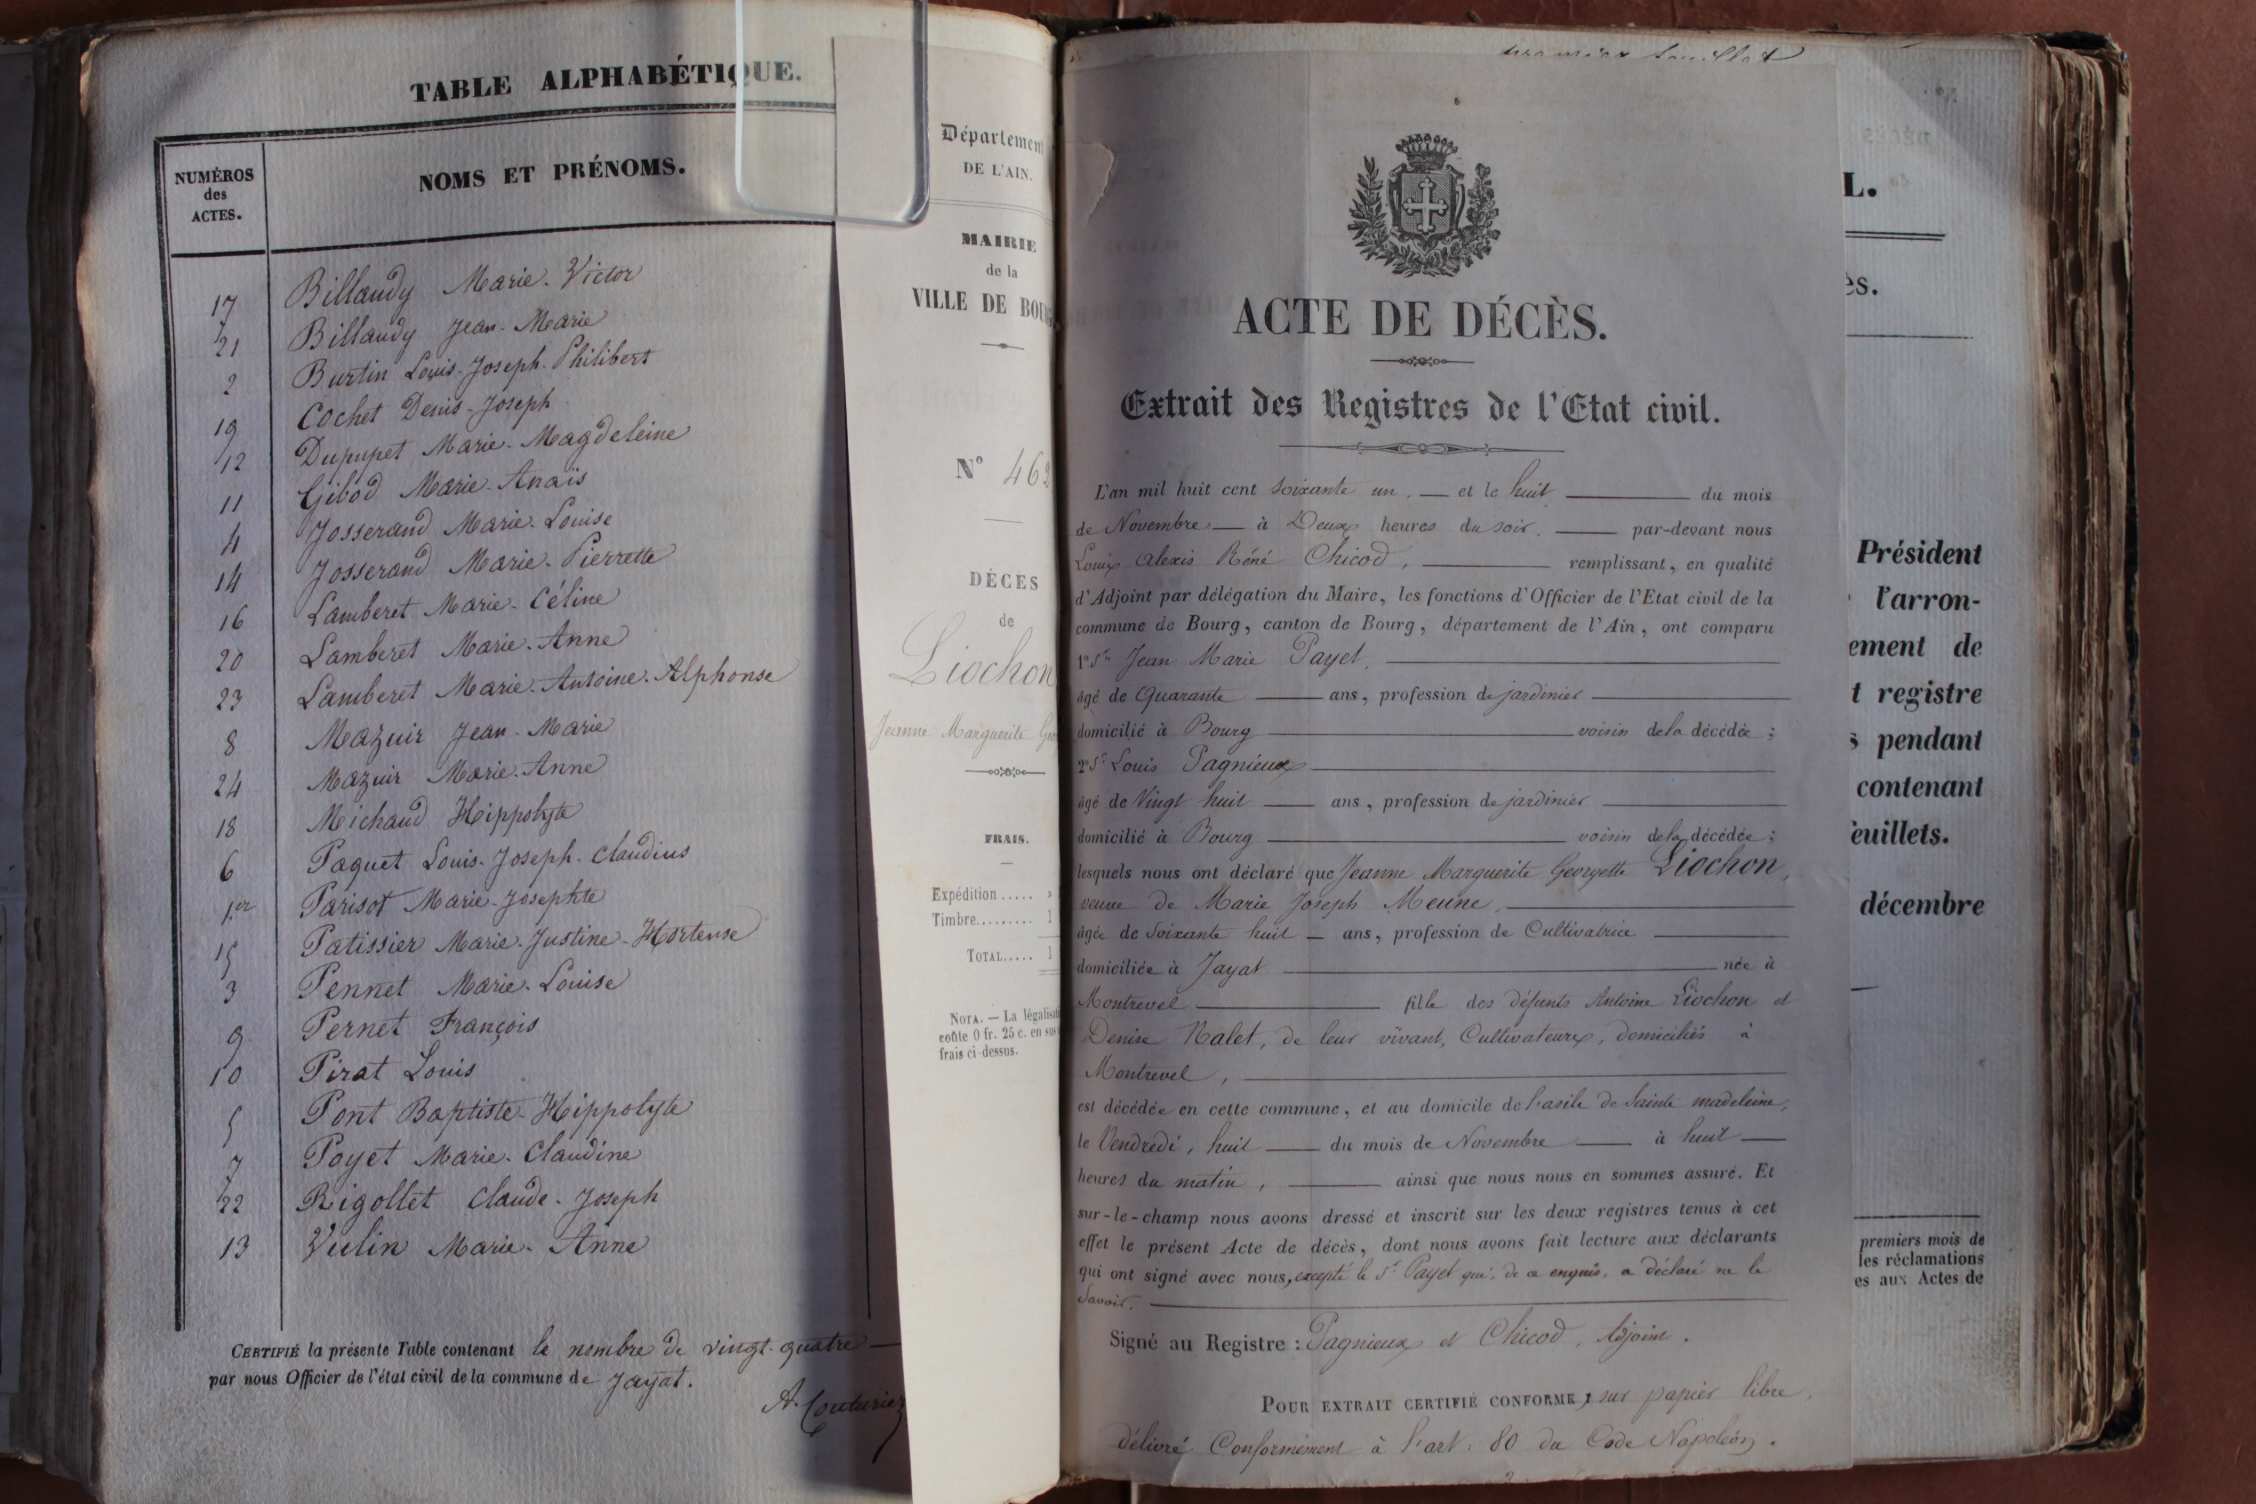 TABLE ALPHABÉTIQUE.
NUMÉROS
des
ACTES.
NOMS ET PRÉNOMS.
17 Billaudy Marie-Victor
21 Billaudy Jean-Marie
2 Burtin Louis-Joseph-Philibert
19 Cochet Denis-Joseph
12 Dupupet Marie-Magdeleine
11 Gibod Marie-Anaïs
4 Josserand Marie-Louise
14 Josserand Marie-Pierrette
16 Lamberet Marie-Céline
20 Lamberet Marie-Anne
23 Lamberet Marie-Antoine-Alphonse
8 Mazuir Jean-Marie
24 Mazuir Marie-Anne
18 Michaud Hippolyte
6 Paquet Louis-Joseph-Claudius
1er Parisot Marie-Josephte
15 Patissier Marie-Justine-Hortense
3 Pennet Marie-Louise
9 Pernet François
10 Pirat Louis
5 Pont Baptiste-Hippolyte
7 Poyet Marie-Claudine
22 Rigollet Claude-Joseph
13 Vulin Marie-Anne
CERTIFIÉ la présente Table contenant le nombre de vingt-quatre
par nous Officier de l'état civil de la commune de Jayat.
A. Couturier
Département
DE L'AIN.
MAIRIE
de la
VILLE DE BOURG
N° 462
DÉCÈS
de
Liochon
Jeanne Marguerite Geo
FRAIS.
Expédition.....
Timbre......... 1
TOTAL..... 1
NOTA. — La légalisat
coûte 0 fr. 25 c. en sus
frais ci-dessus.
premier feuillet
ACTE DE DÉCÈS.
Extrait des Registres de l'Etat civil.
L'an mil huit cent soixante un, et le huit du mois
de Novembre à Deux heures du soir, par-devant nous
Louis Alexis Réné Chicod, remplissant, en qualité
d'Adjoint par délégation du Maire, les fonctions d'Officier de l'Etat civil de la
commune de Bourg, canton de Bourg, département de l'Ain, ont comparu
1° Sr Jean Marie Payet,
âgé de Quarante ans, profession de jardinier
domicilié à Bourg voisin de la décédée;
2° Sr Louis Pagnieux
âgé de Vingt huit ans, profession de jardinier
domicilié à Bourg voisin de la décédée;
lesquels nous ont déclaré que Jeanne Marguerite Georgette Liochon,
veuve de Marie Joseph Meune,
âgée de Soixante huit ans, profession de Cultivatrice
domiciliée à Jayat née à
Montrevel fille des défunts Antoine Liochon et
Denise Nalet, de leur vivant, Cultivateurs, domiciliés à
Montrevel,
est décédée en cette commune, et au domicile de l'asile de Sainte madeleine,
le Vendredi, huit du mois de Novembre à huit
heures du matin, ainsi que nous nous en sommes assuré. Et
sur-le-champ nous avons dressé et inscrit sur les deux registres tenus à cet
effet le présent Acte de décès, dont nous avons fait lecture aux déclarants
qui ont signé avec nous, excepté le Sr Payet qui, de ce enquis, a déclaré ne le
Savoir.
Signé au Registre : Pagnieux et Chicod, Adjoint.
POUR EXTRAIT CERTIFIÉ CONFORME, sur papier libre,
délivré Conformément à l'art. 80 du Code Napoléon.
L.
ès.
Président
l'arron-
ement de
t registre
s pendant
contenant
euillets.
décembre
premiers mois de
les réclamations
es aux Actes de